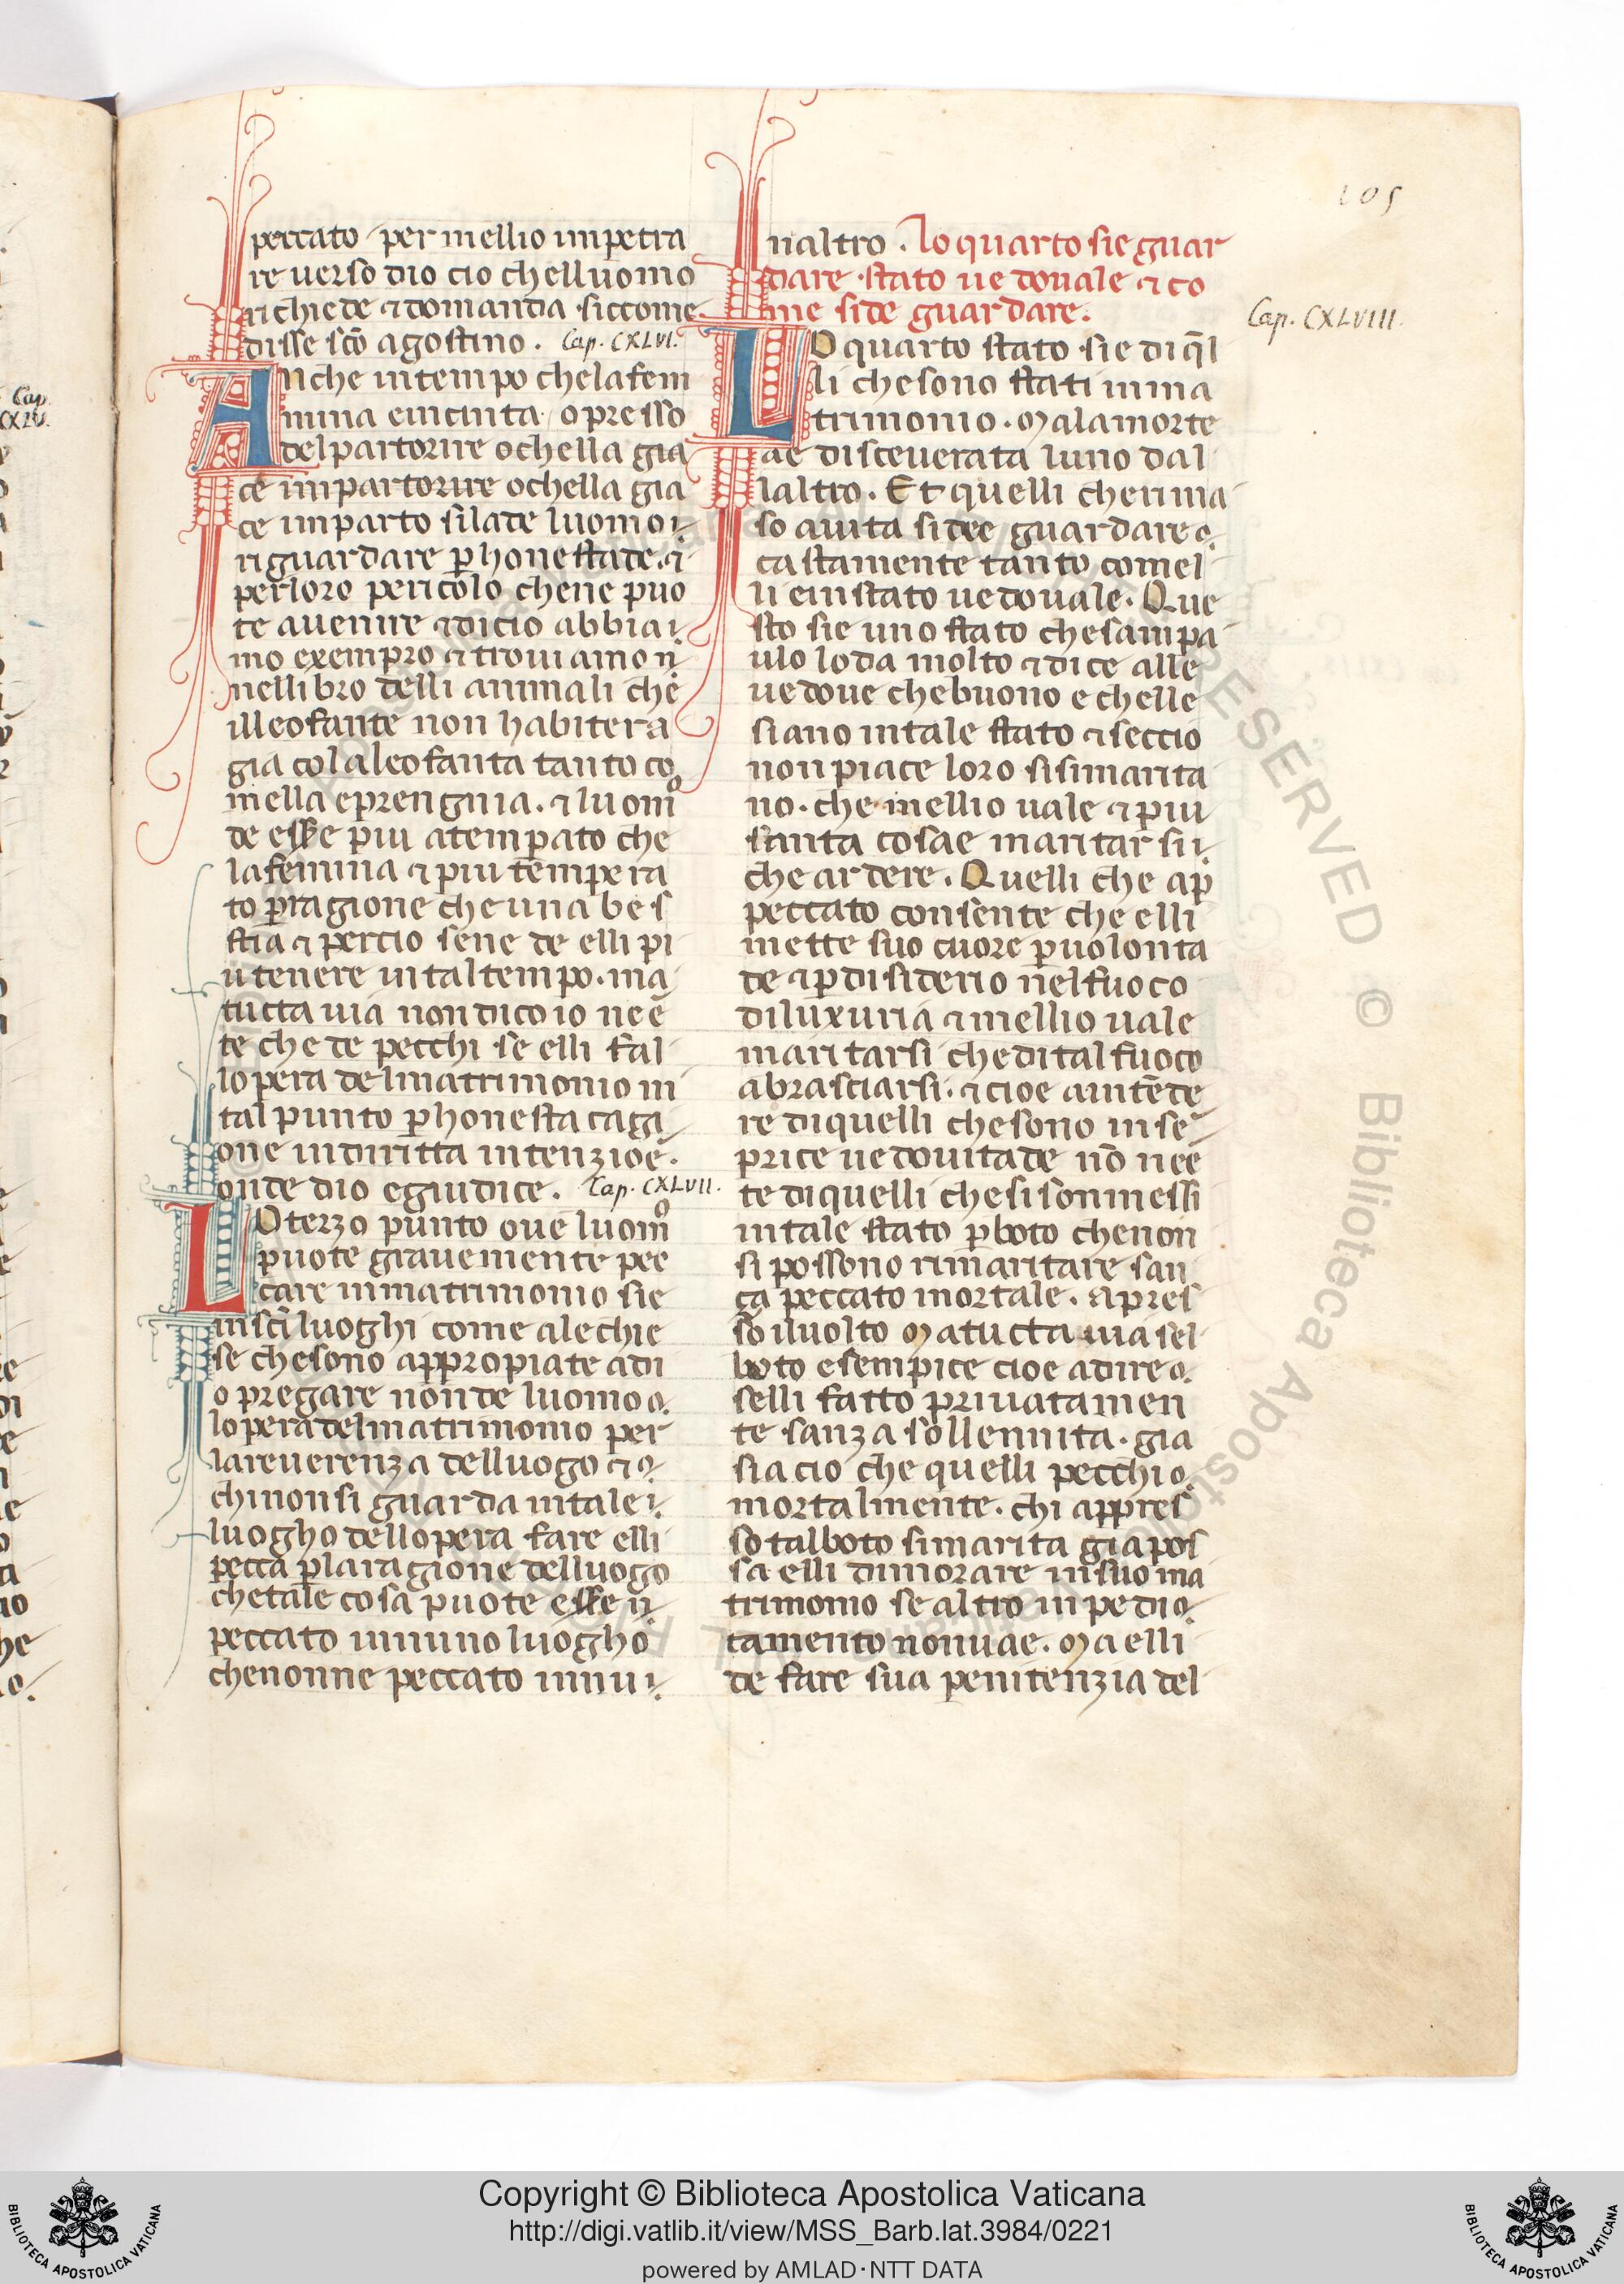 105
peccato per mellio impetra
re verso dio cio chelluomo
richiede ⁊ domanda siccome
disse sc̄o agostino. Cap. CXLVI.
Anche in tempo chela fem
mina e incinta o presso
del partorire o chella gia
ce impartorire o chella gia
ce imparto si la de luomo
riguardare ꝑ honestade. ⁊
per loro pericolo chene puo
te avenire ⁊ dicio abbia
mo exempro ⁊ troviamo
nellibro delli animali che
illeofante non habitera
gia colaleofanta tanto co
mella e prengnia. ⁊ luomo
de esse piu atempato che
la femina ⁊ piu tempera
to ꝑ ragione che una bes
stia ⁊ percio sene de elli pi
u tenere in tal tempo. ma
tucta via non dico io nee
te che de pecchi se elli fal
lopera del matrimonio in
tal punto ꝑ honesta caga
one in diritta intenzioē.
onde dio e giudice. Cap. CXLVII.
LO terzo punto ove luomo
puote gravemente pec
care in matrimonio sie
in sc̄i luoghi come ale chie
se che sono appropiate adi
o pregare non de luomo
lopera del matrimonio per
la reverenza delluogo ⁊
chi non si guarda in tale
luogho dellopera fare elli
pecca ꝑ la ragione delluogo
che tale cosa puote esse
peccato in uno luogho
che nonne peccato in un
naltro. Lo quarto sie guar
dare stato vedovale ⁊ co
me side guardare.
Cap. CXLVIII.
LO quarto stato sie di q̄l
li che sono stati in ma
trimonio. Ma la morte
ae disceverata luno dal
laltro. Et quelli che rima
so a vita si dee guardare
castamente tanto comel
li e in stato vedovale. Que
sto sie uno stato che sam pa
ulo loda molto ⁊ dice alle
vedove che buono e chelle
siano in tale stato ⁊ seccio
non piace loro si si marita
no. che mellio vale ⁊ piu
santa cosa e maritarsi
che ardere. Quelli che ap
peccato consente che elli
mette suo cuore ꝑ volonta
de ⁊ ꝑ disiderio nel fuoco
di luxuria ⁊ mellio vale
maritarsi che di tal fuoco
abrasciarsi. ⁊ cioe a intēde
re di quelli che sono in se
price vedovitade nō nee
te di quelli che si son messi
in tale stato ꝑ boto che non
si possono rimaritare san
ça peccato mortale. apres
so il volto Ma tucta via sel
boto e sempice cioe a dire
selli fatto privatamen
te sanza sollennita. gia
sia cio che quelli pecchi
mortalmente. chi appres
so tal boto si marita gia pos
sa elli dimorare in suo ma
trimonio se altro inpedi
tamento non vae. Ma elli
de fare sua penitenzia del
Copyright © Biblioteca Apostolica Vaticana
http://digi.vatlib.it/view/MSS_Barb.lat.3984/0221
powered by AMLAD·NTT DATA